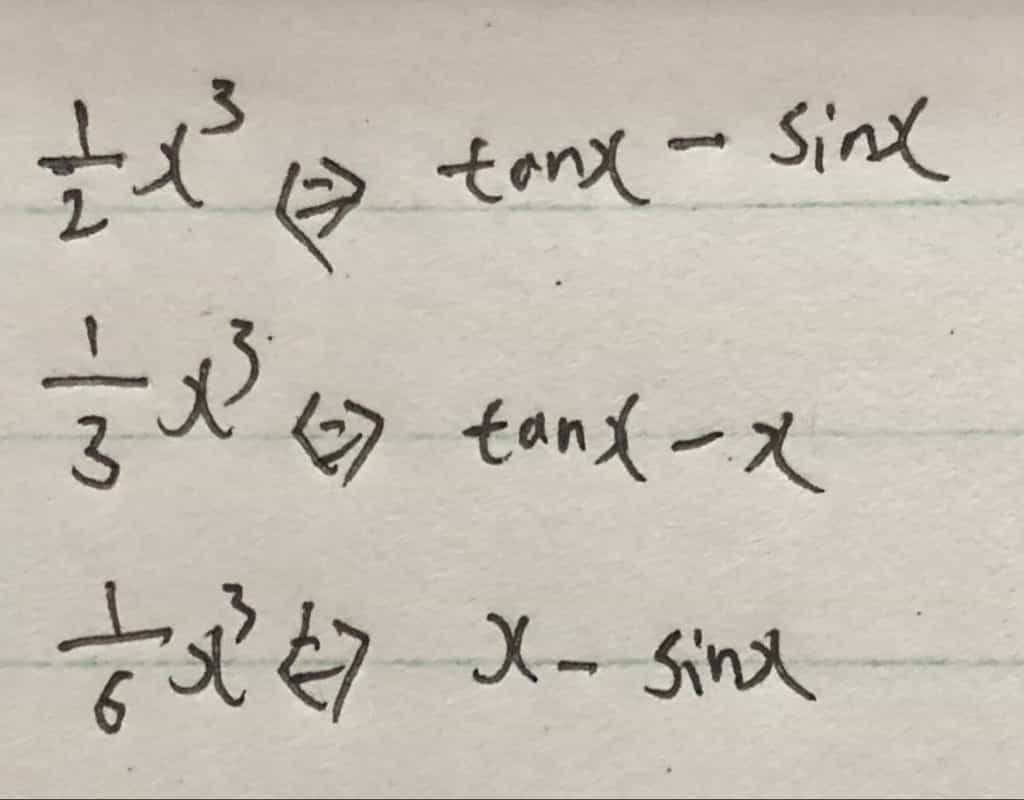 1/2 x³ ⇔ tanx - sinx
1/3 x³ ⇔ tanx - x
1/6 x³ ⇔ x - sinx